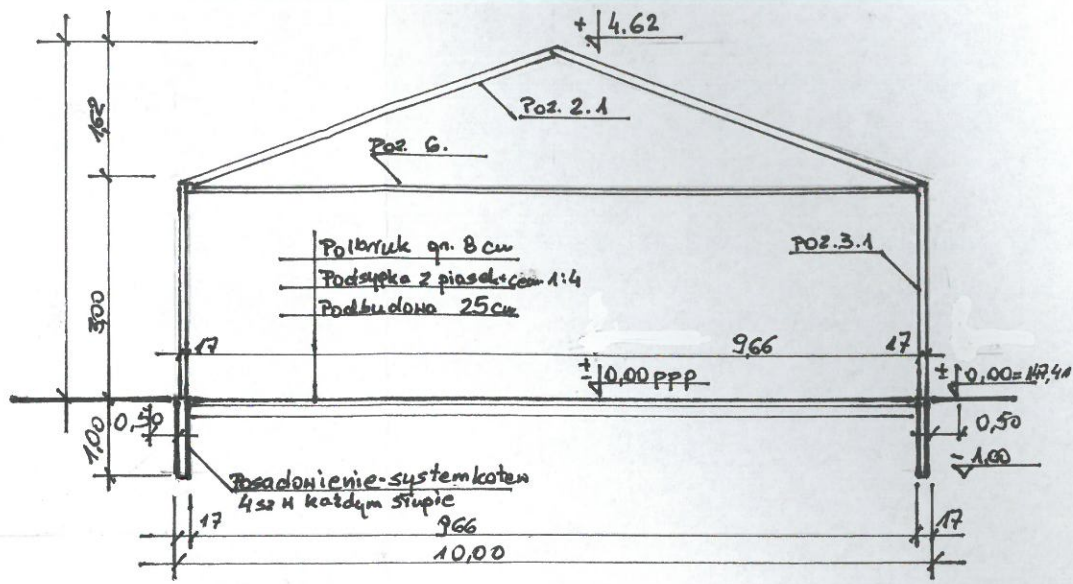 + 4.62
1,62
Poz. 2.1
Poz 6.
Polbruk gr. 8 cm
Podsypka z piasek+cem 1:4
Podbudowa 25cm
Poz.3.1
3,00
17
9,66
17
± 0,00 ppp
± 0,00=147,41
1,00
0,50
0,50
- 1,00
Posadowienie-system kotew
4 sz w każdym słupie
17
966
17
10,00